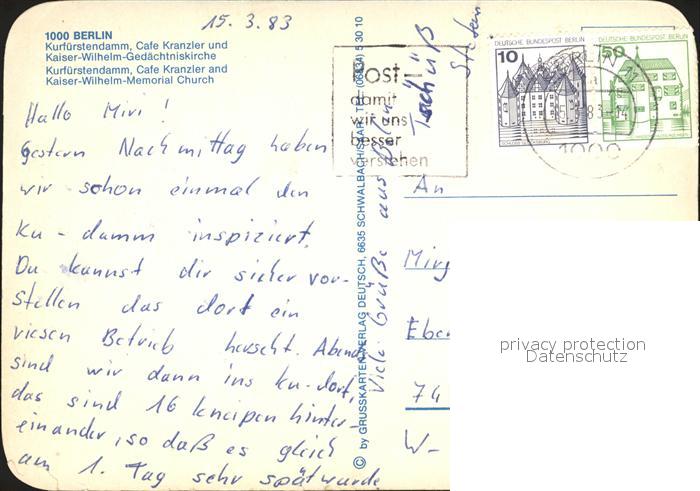 15.3.83
1000 BERLIN
Kurfürstendamm, Cafe Kranzler und
Kaiser-Wilhelm-Gedächtniskirche
Kurfürstendamm, Cafe Kranzler and
Kaiser-Wilhelm-Memorial Church
Hallo Miri!
gestern Nachmittag haben
wir schon einmal den
Ku-damm inspiziert.
Du kannst dir sicher vor-
stellen das dort ein
riesen Betrieb herscht. Abends
sind wir dann ins Ku-dorf,
das sind 16 kneipen hinter-
einander, so daß es gleich
am 1. Tag sehr spät wurde
Viele Grüße aus Berlin
Tschüß
Stefan
© by GRUSSKARTEN-VERLAG DEUTSCH, 6635 SCHWALBACH/SAAR, TEL. (06834) 5 30 10
Post-
damit
wir uns
besser
verstehen
DEUTSCHE BUNDESPOST BERLIN
10
SCHLOSS GLÜCKSBURG
DEUTSCHE BUNDESPOST BERLIN
50
BERLIN 11
83-04
1000
An
Eber
74
W-
privacy protection
Datenschutz